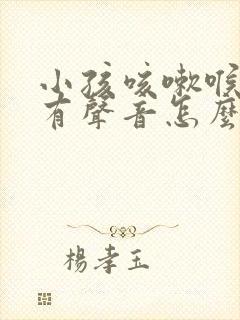 小孩咳嗽喉
有聲音怎麼
楊孝玉